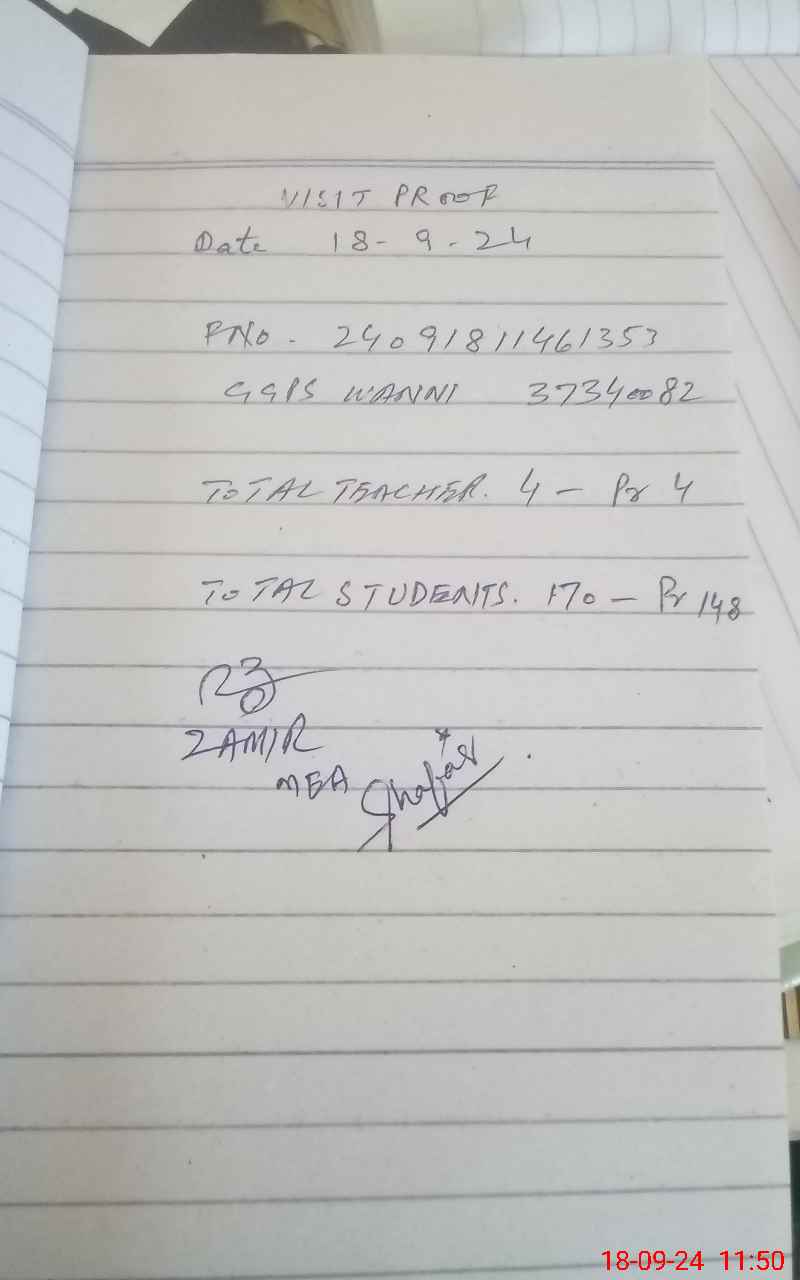 VISIT PROOF
Date 18-9-24
PNo. 24091811461353
GGPS WANNI 37340082
TOTAL TEACHER. 4 - Pr 4
TOTAL STUDENTS. 170 - Pr 148
ZAMIR
MEA
18-09-24 11:50